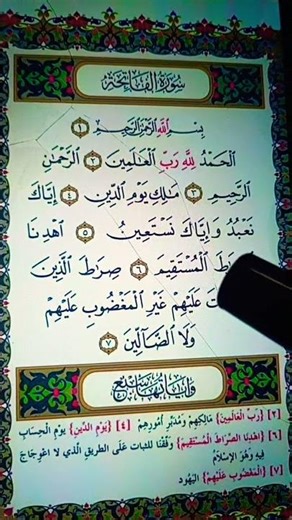 سُورَةُ الْفَاتِحَةِ
بِسْمِ اللَّهِ الرَّحْمَٰنِ الرَّحِيمِ ١
الْحَمْدُ لِلَّهِ رَبِّ الْعَالَمِينَ ٢ الرَّحْمَٰنِ
الرَّحِيمِ ٣ مَالِكِ يَوْمِ الدِّينِ ٤ إِيَّاكَ
نَعْبُدُ وَإِيَّاكَ نَسْتَعِينُ ٥ اهْدِنَا
الْمُسْتَقِيمَ ٦ صِرَاطَ الَّذِينَ
عَلَيْهِمْ غَيْرِ الْمَغْضُوبِ عَلَيْهِمْ
وَلَا الضَّالِّينَ ٧
وَآيَاتُهَا سَبْعٌ
[٢] {رَبِّ الْعَالَمِينَ} مَالِكِهِمْ وَمُدَبِّرِ أُمُورِهِمْ [٤] {يَوْمِ الدِّينِ} يَوْمِ الْحِسَابِ
[٦] {اهْدِنَا الصِّرَاطَ الْمُسْتَقِيمَ} وَفِّقْنَا لِلثَّبَاتِ عَلَى الطَّرِيقِ الَّذِي لَا اعْوِجَاجَ
فِيهِ وَهُوَ الْإِسْلَامُ
[٧] {الْمَغْضُوبِ عَلَيْهِمْ} الْيَهُودِ